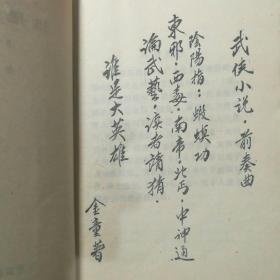 武俠小说·前奏曲
陰陽指；蝦蟆功
東邪·西毒·南帝·北丐·中神通
論武藝，讀者請猜·
誰是大英雄
金童著